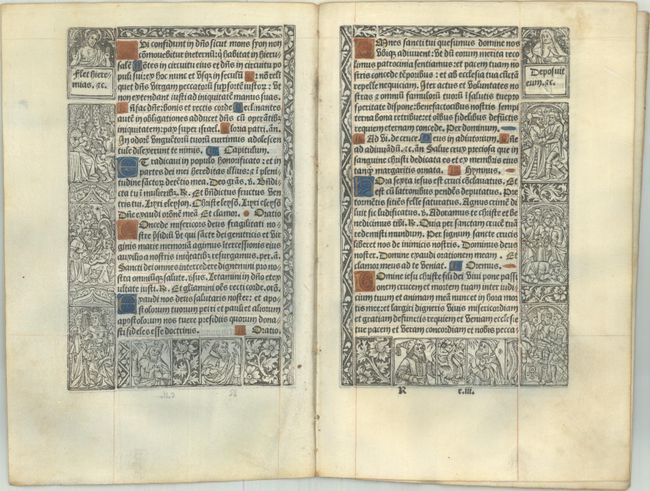 Flet hiere
mias. ⁊c.
Qui confidunt in dño sicut mons syon non
commouebitur in eternũ: q̃ habitat in hieru
salẽ Mõtes in circuitu eius et dñs in circuitu po
puli sui: ex hoc nunc et vsq; in seculũ Quia nõ reli
quet dñs virgam peccatorũ sup sortẽ iustorũ: vt
non extendant iusti ad iniquitatẽ manus suas.
Bñfac dñe: bonis et rectis corde Declinantes
autẽ in obligationes adducet dñs cũ operãtib9
iniquitatem: pax super israel. Gloria patri. añ.
In odorẽ vnguẽtorũ tuorũ currimus adolescen
tule dilexerunt te nimis. Capitulum.
Et radicaui in populo honorificato: et in
partes dei mei hereditas illius: ⁊ ĩ pleni
tudine sãctorũ detẽtio mea. Deo grãs. ℣. Bñdi
cta tu ĩ mulierib9. ℟. Et bñdictus fructus ven
tris tui. Kyri eleyson. Christe eleesõ. Kyri eleesõ
Dñe exaudi oratiõnẽ meã Et clamor. Oratio
Concede misericors deus fragilitati no
stre p̃sidiũ vt qui sacte dei genetricis et vir
ginis marie memoriã agimus ĩtercessionis eius
auxilio a nostris iniqtatib9 resurgamus. per. ã.
Sancti dei omnes intercedere dignemini pro no
stra omniũq; salute. ℣sus. Letamini ĩ dño et ex
ultate iusti. ℟. Et gliamini oẽs recti corde. orõ.
Exaudi nos deus salutaris noster: et apo
stolorum tuorum petri et pauli et aliorum
apostolorum nos tuere presidiis quorum dona
sti fideles esse doctrinis. Oratio.
Omnes sancti tui quesumus domine nos
vbiq; adiuuent: vt dũ eorum merita reco
limus patrocinia sentiamus: et pacem tuam no
stris concede tẽporibus: et ab ecclesia tua cũctã
repelle nequitiam. Iter actus et voluntates no
stras ⁊ omniũ famulorũ tuorũ ĩ salutis tue pro
speritate dispone: benefactoribus nostris semp̃i
terna bona retribue: et oĩbus fidelibus defũctis
requiem eternam concede. Per dominum.
Ad vi. de cruce. Deus in adiutorium. Dñe
ad adiuuãdũ. ⁊c. añ. Salue crux preciosa que in
sanguine christi dedicata es et ex membris eius
tanq̃ margaritis ornata. Hymnus.
Hora sexta iesus est cruci cõclauatus. Et
est cũ latronibus pendẽs deputatus. Pre
tormentis sitiẽs felle saturatus. Agnus crimẽ di
luit sic ludificatus. ℣. Adoramus te christe et be
nedicimus tibi. ℟. Quia per sanctam crucẽ tuã
redemisti mundum. Per signum sancte crucis
liberet nos de inimicis nostris. Dominus deus
noster. Domine exaudi orationem meam. Et
clamor meus ad te veniat. Oremus.
Domine iesu christe fili dei viui pone passi
onem crucem et mortem tuam inter iudi
cium tuum et animam meã nunc et in hora mo
rtis mee: et largiri digneris viuis misericordiam
et gratiam defunctis requiem et veniam ecclesie
tue pacem et veram concordiam et nobis pecca
Deposuit
eum. ⁊c.
R c.iii.